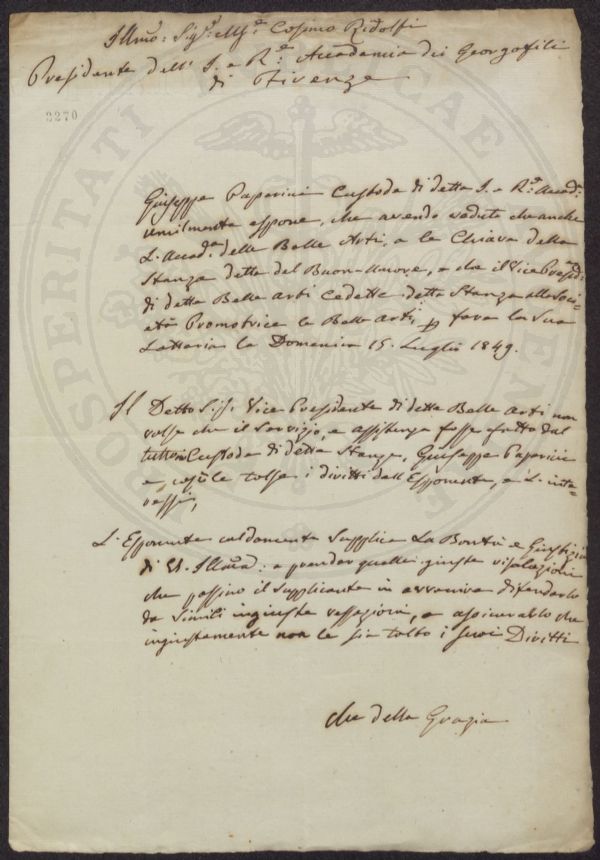 Illmo: Sigr. Mse. Cosimo Ridolfi
Presidente dell' I. e R.e Accademia dei Georgofili
di Firenze
3270
PROSPERITATI PUBLICAE
Giuseppe Paperini Custode di detta I. e R.e Accad.
umilmente espone, che avendo veduto che anche
L'Accad.a delle Belle Arti, a la Chiave della
Stanza detta del Buon-Umore, e che il Vice Presid:
di dette Belle arti cedette detta Stanza alla Soci-
età Promotrice le Belle arti, p fare la Sua
Lotteria la Domenica 15. Luglio 1849.
Il Detto S.r Vice Presidente di dette Belle arti non
volse che il Servizio, e assistenza fosse fatto dal
Custode di detta Stanza, Giuseppe Paperini
e così le tolse i diritti dell'Esponente, e l'inte-
ressi,
L'Esponente caldamente Supplica La Bontà e Giustizia
di V.S. Illma: a prender quelle giuste risoluzioni
che possino il Supplicante in avvenire difenderlo
da Simili ingiuste vessazioni, e assicurarlo che
ingiustamente non le sia tolto i Suoi Diritti
che della Grazia